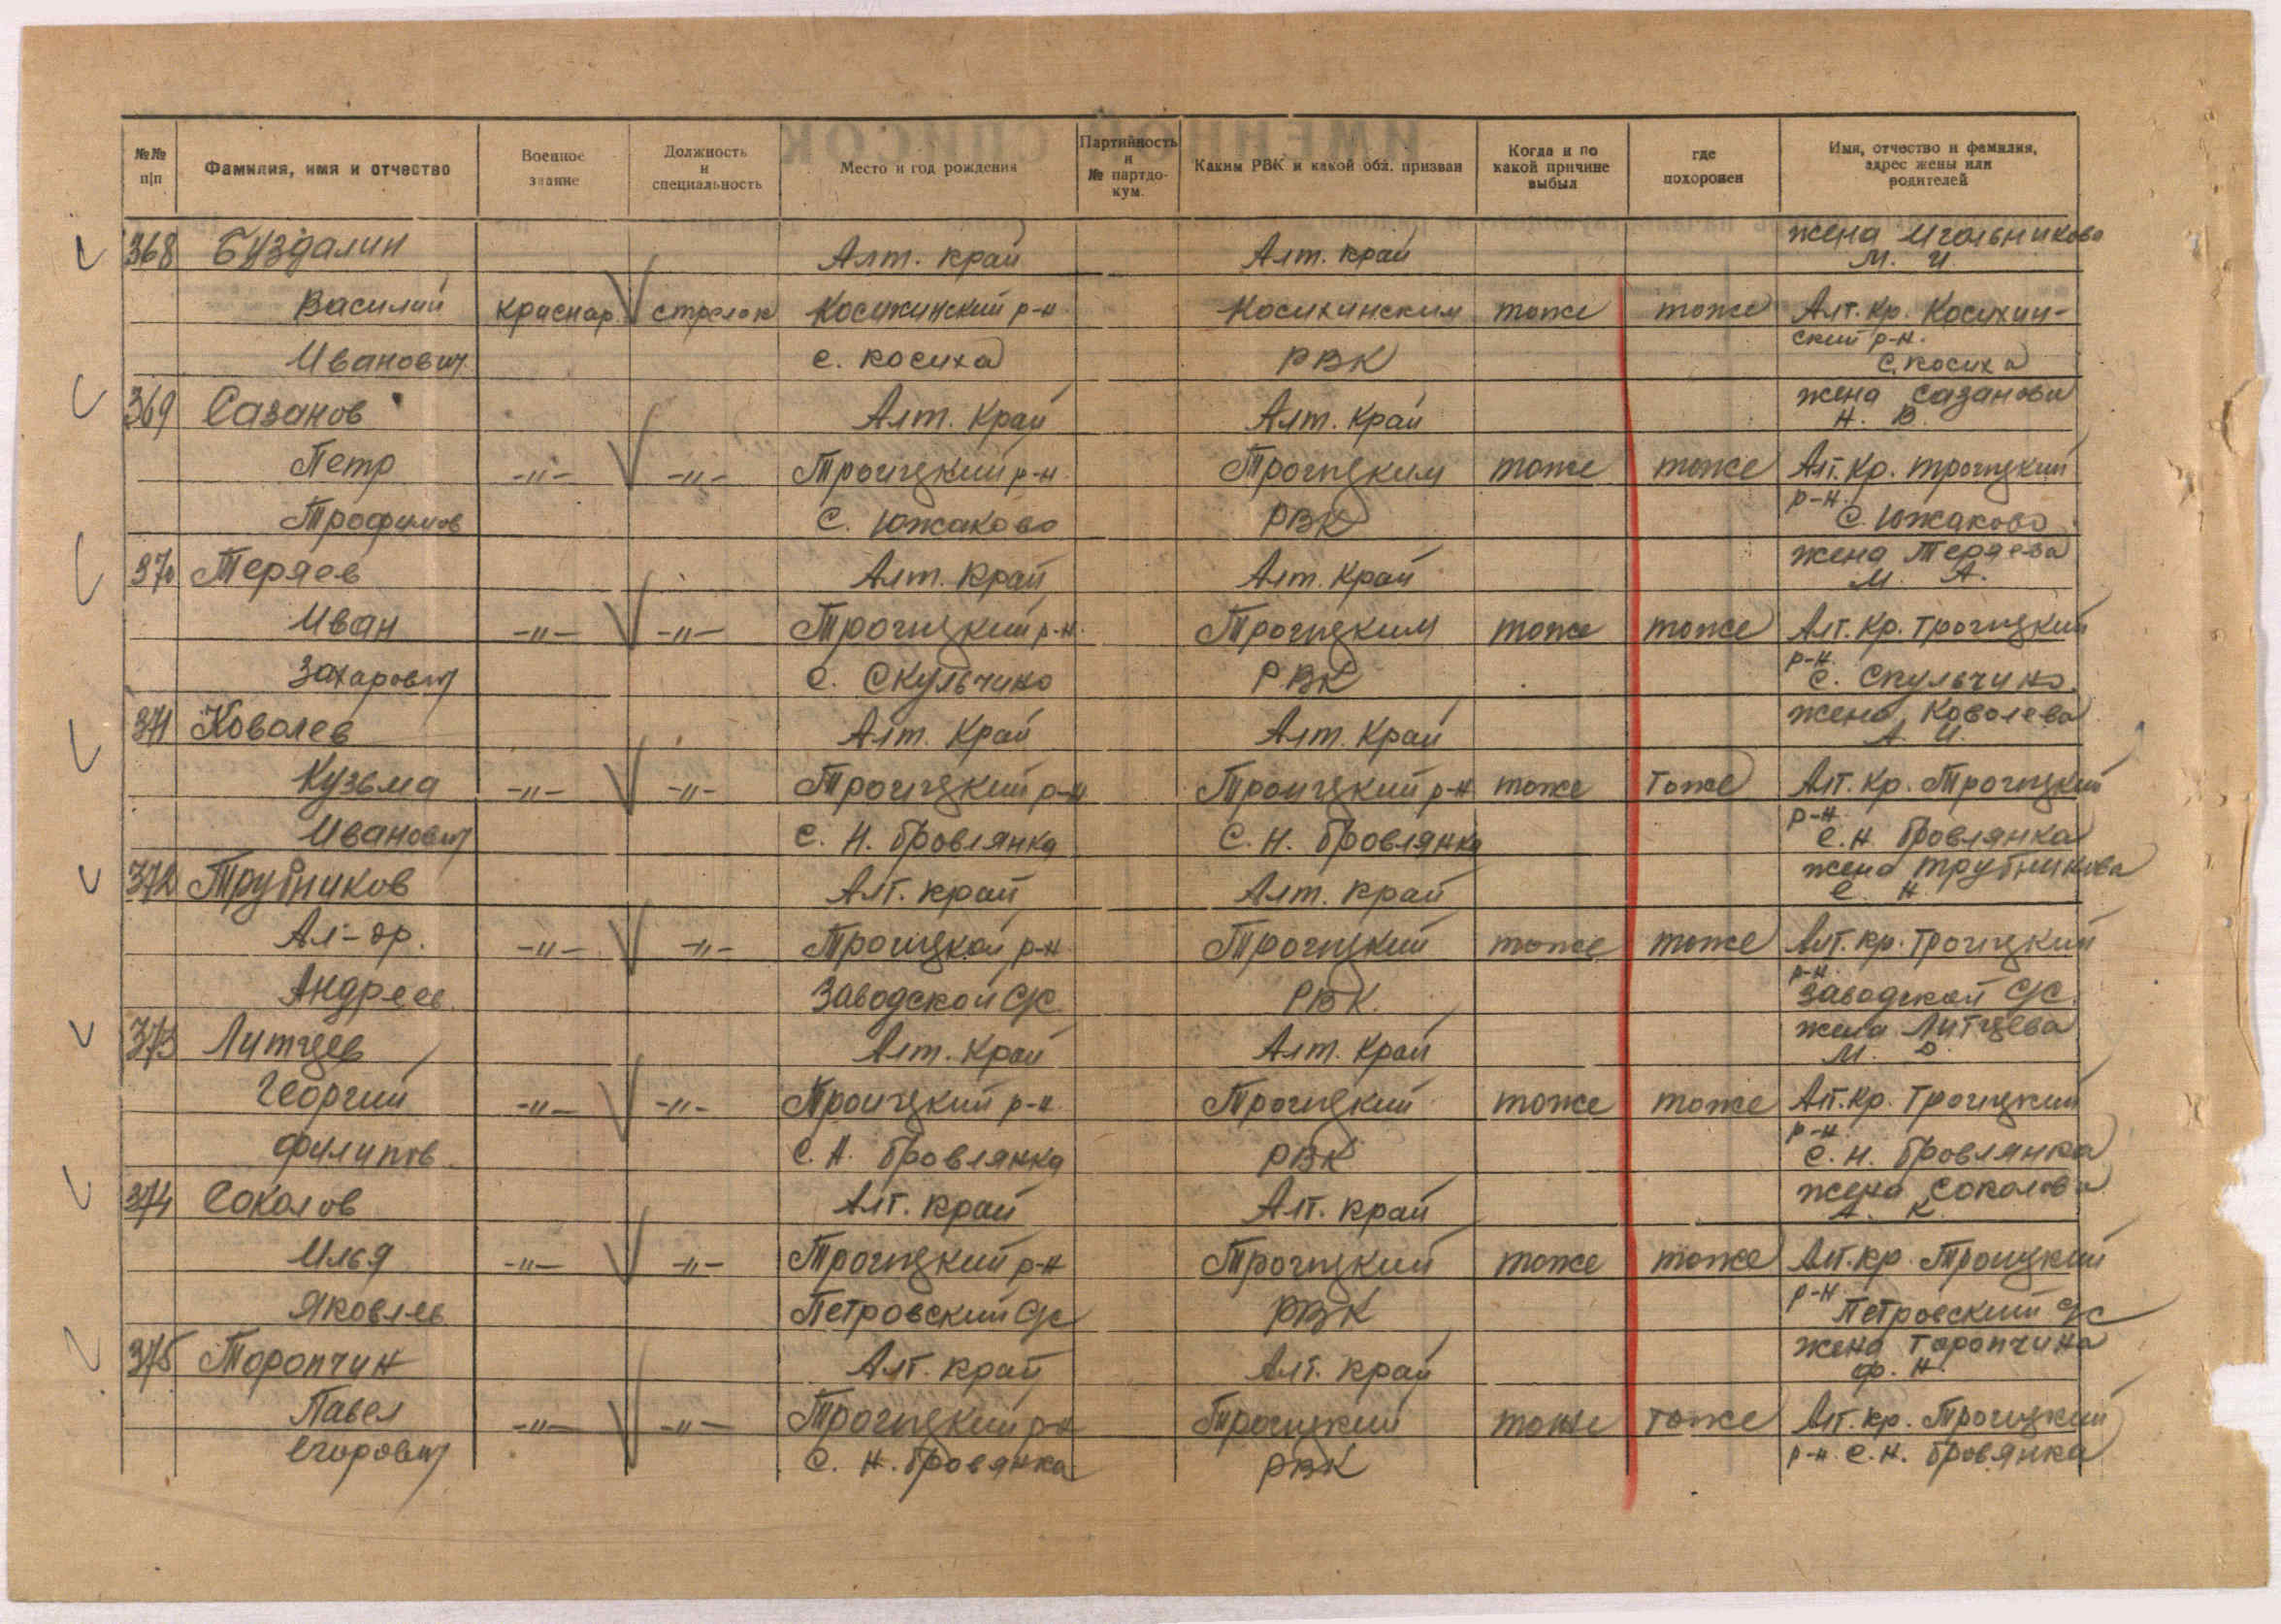 ИМЕННОЙ СПИСОК
№№ п|п
Фамилия, имя и отчество
Военное звание
Должность и специальность
Место и год рождения
Партийность и № партдокум.
Каким РВК и какой обл. призван
Когда и по какой причине выбыл
где похоронен
Имя, отчество и фамилия, адрес жены или родителей
368 Буздалин Алт. край Алт. край жена Игольникова М. И.
Василий краснар. стрелок Косихинский р-н Косихинским тоже тоже Алт. Кр. Косихин-
ский р-н.
Иванович с. косиха РВК С. косиха
369 Сазанов Алт. Край Алт. Край жена Сазанова Н. В.
Петр -"- -"- Троицкий р-н Троицким тоже тоже Алт. Кр. троицкий
р-н.
Трофимов С. Южаково РВК С. Южаково
370 Теряев Алт. Край Алт. Край жена Теряева М. А.
Иван -"- -"- Троицкий р-н. Троицким тоже тоже Алт. Кр. Троицкий
р-н.
Захарович с. Скульчино РВК с. Скульчино.
371 Ковалев Алт. Край Алт. Край жена Ковалева А. И.
Кузьма -"- -"- Троицкий р-н Троицкий р-н тоже тоже Алт. Кр. Троицкий
р-н.
Иванович С. Н. Бровлянка С. Н. Бровлянка С. Н. Бровлянка
372 Трубников Алт. край Алт. край жена Трубникова Е. Н.
Ал-др. -"- -"- Троицкой р-н Троицкий тоже тоже Алт. кр. Троицкий
р-н.
Андреев. Заводской С/С РВК. Заводской С/С.
373 Литцев Алт. Край Алт. Край жена Литцева М.
Георгий -"- -"- Троицкий р-н. Троицкий тоже тоже Алт. Кр. Троицкий
р-н.
Филипов С. Н. Бровлянка РВК С. Н. Бровлянка
374 Соколов Алт. край Алт. край жена Соколова А. К.
Илья -"- -"- Троицкий р-н Троицкий тоже тоже Алт. кр. Троицкий
р-н
Яковлев Петровский С/С РВК Петровский С/С
375 Торопчин Алт. край Алт. край жена Торопчина Ф. Н.
Павел -"- -"- Троицкий р-н Троицкий тоже тоже Алт. кр. Троицкий
Егорович С. Н. Бровянка РВК р-н. С. Н. Бровянка